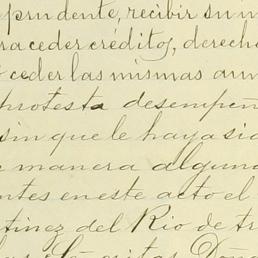 prudente, recibir su in
ra ceder créditos, derecho
ceder las mismas aun
protesta desempeñ
sin que le haya sid
manera alguna
ntes en este acto el
tinez del Rio de tr